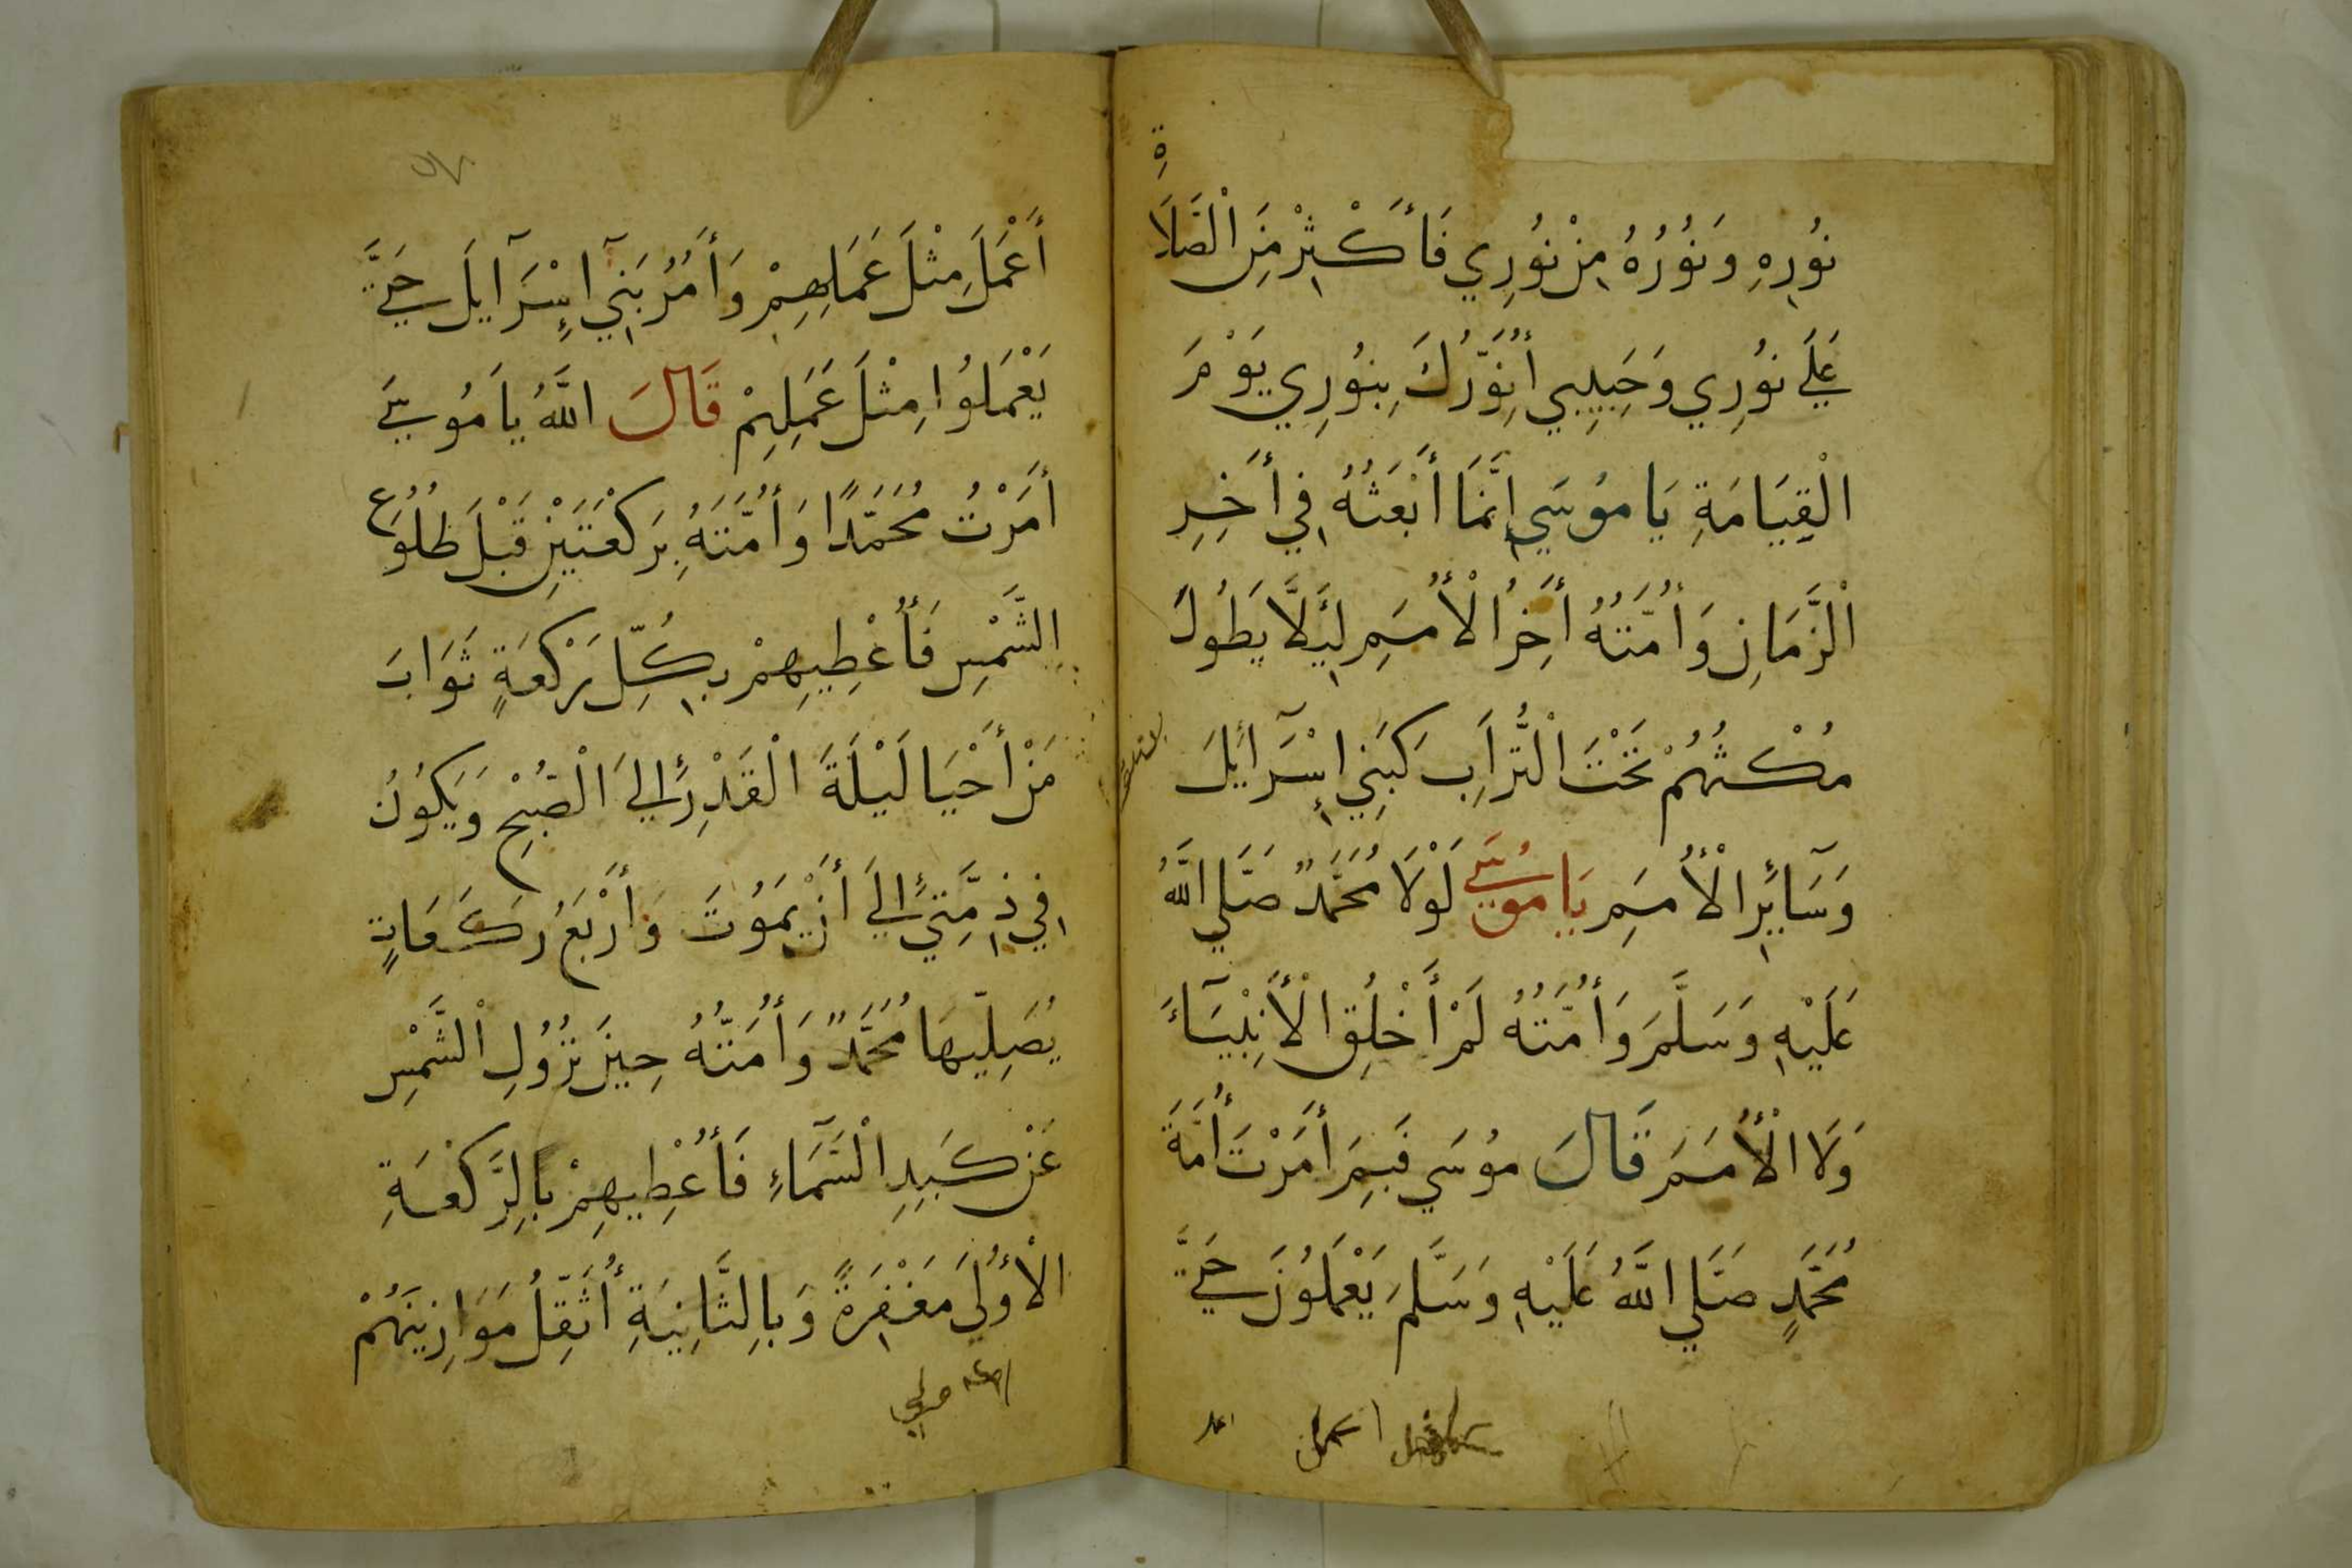 نُورِهِ وَنُورُهُ مِنْ نُورِي فَأَكْثِرْ مِنَ الْصَلَاةِ
عَلَي نُورِي وَحَبِيبِي أُنَوِّرُكَ بِنُورِي يَوْمَ
الْقِيَامَةِ يَا مُوسَي إِنَّمَا أَبْعَثُهُ فِي أَخِرِ
الْزَّمَانِ وَأُمَّتُهُ أَخِرُ الْأُمَمِ لِيَلَّا يَطُولَ
مُكْثُهُمْ تَحْتَ الْتُّرَابِ كَبَنِي إِسْرَآئِلَ
وَسَآئِرِ الْأُمَمِ يَا مُوسَي لَوْلَا مُحَمَّدٌ صَلَّي اللَّهُ
عَلَيْهِ وَسَلَّمَ وَأُمَّتُهُ لَمْ أَخْلُقِ الْأَنْبِيَآءَ
وَلَا الْأُمَمَ قَالَ مُوسَي فَبِمَ أَمَرْتَ أُمَّةَ
مُحَمَّدٍ صَلَّي اللَّهُ عَلَيْهِ وَسَلَّمَ يَعْمَلُونَ حَتَّي
اعمل
أَعْمَلَ مِثْلَ عَمَلِهِمْ وَأَمُرُ بَنِي إِسْرَآيلَ حَتَّي
يَعْمَلُوا مِثْلَ عَمَلِهِمْ قَالَ اللَّهُ يَا مُوسَي
أَمَرْتُ مُحَمَّدًا وَأُمَّتَهُ بِرَكْعَتَيْنِ قَبْلَ طُلُوعِ
الشَّمْسِ فَأُعْطِيهِمْ بِكُلِّ رَكْعَةٍ ثَوَابَ
مَنْ أَحْيَا لَيْلَةَ الْقَدْرِ إِلَي الْصُبْحِ وَيَكُونُ
فِي ذِمَّتِي إِلَي أَنْ يَمُوتَ وَأَرْبَعُ رَكَعَاتٍ
يُصَلِّيهَا مُحَمَّدٌ وَأُمَّتُهُ حِينَ نُزُولِ الْشَّمْسِ
عَنْ كَبَدِ الْسَّمَآءِ فَأُعْطِيهِمْ بِالرَّكْعَةِ
الْأُولَي مَغْفِرَةً وَبِالثَّانِيَةِ أُثَقِّلُ مَوَازِينَهُمْ